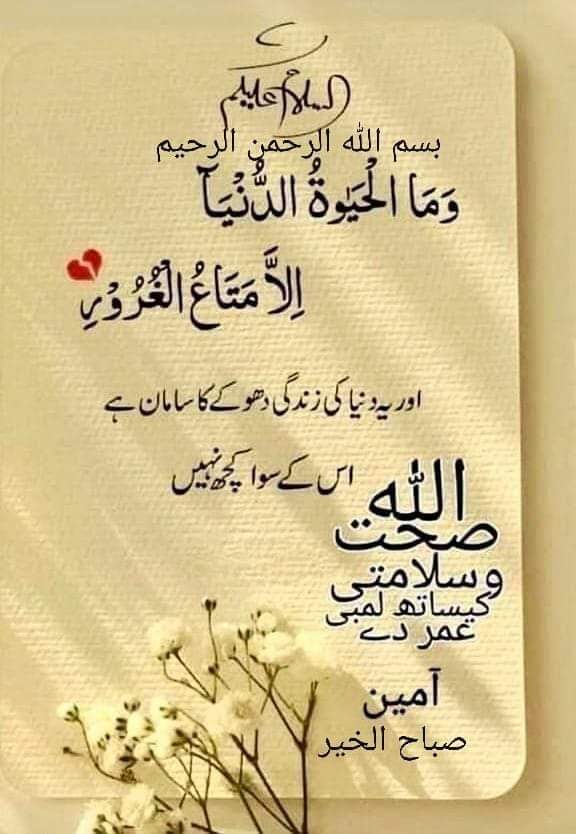 السلام علیکم
بسم الله الرحمن الرحيم
وَمَا الْحَيٰوةُ الدُّنْيَآ
اِلاَّ مَتَاعُ الْغُرُوْرِ
اور یہ دنیا کی زندگی دھوکے کا سامان ہے
اس کے سوا کچھ نہیں
الله
صحت
وسلامتی
کیساتھ لمبی
عمر دے
آمین
صباح الخير